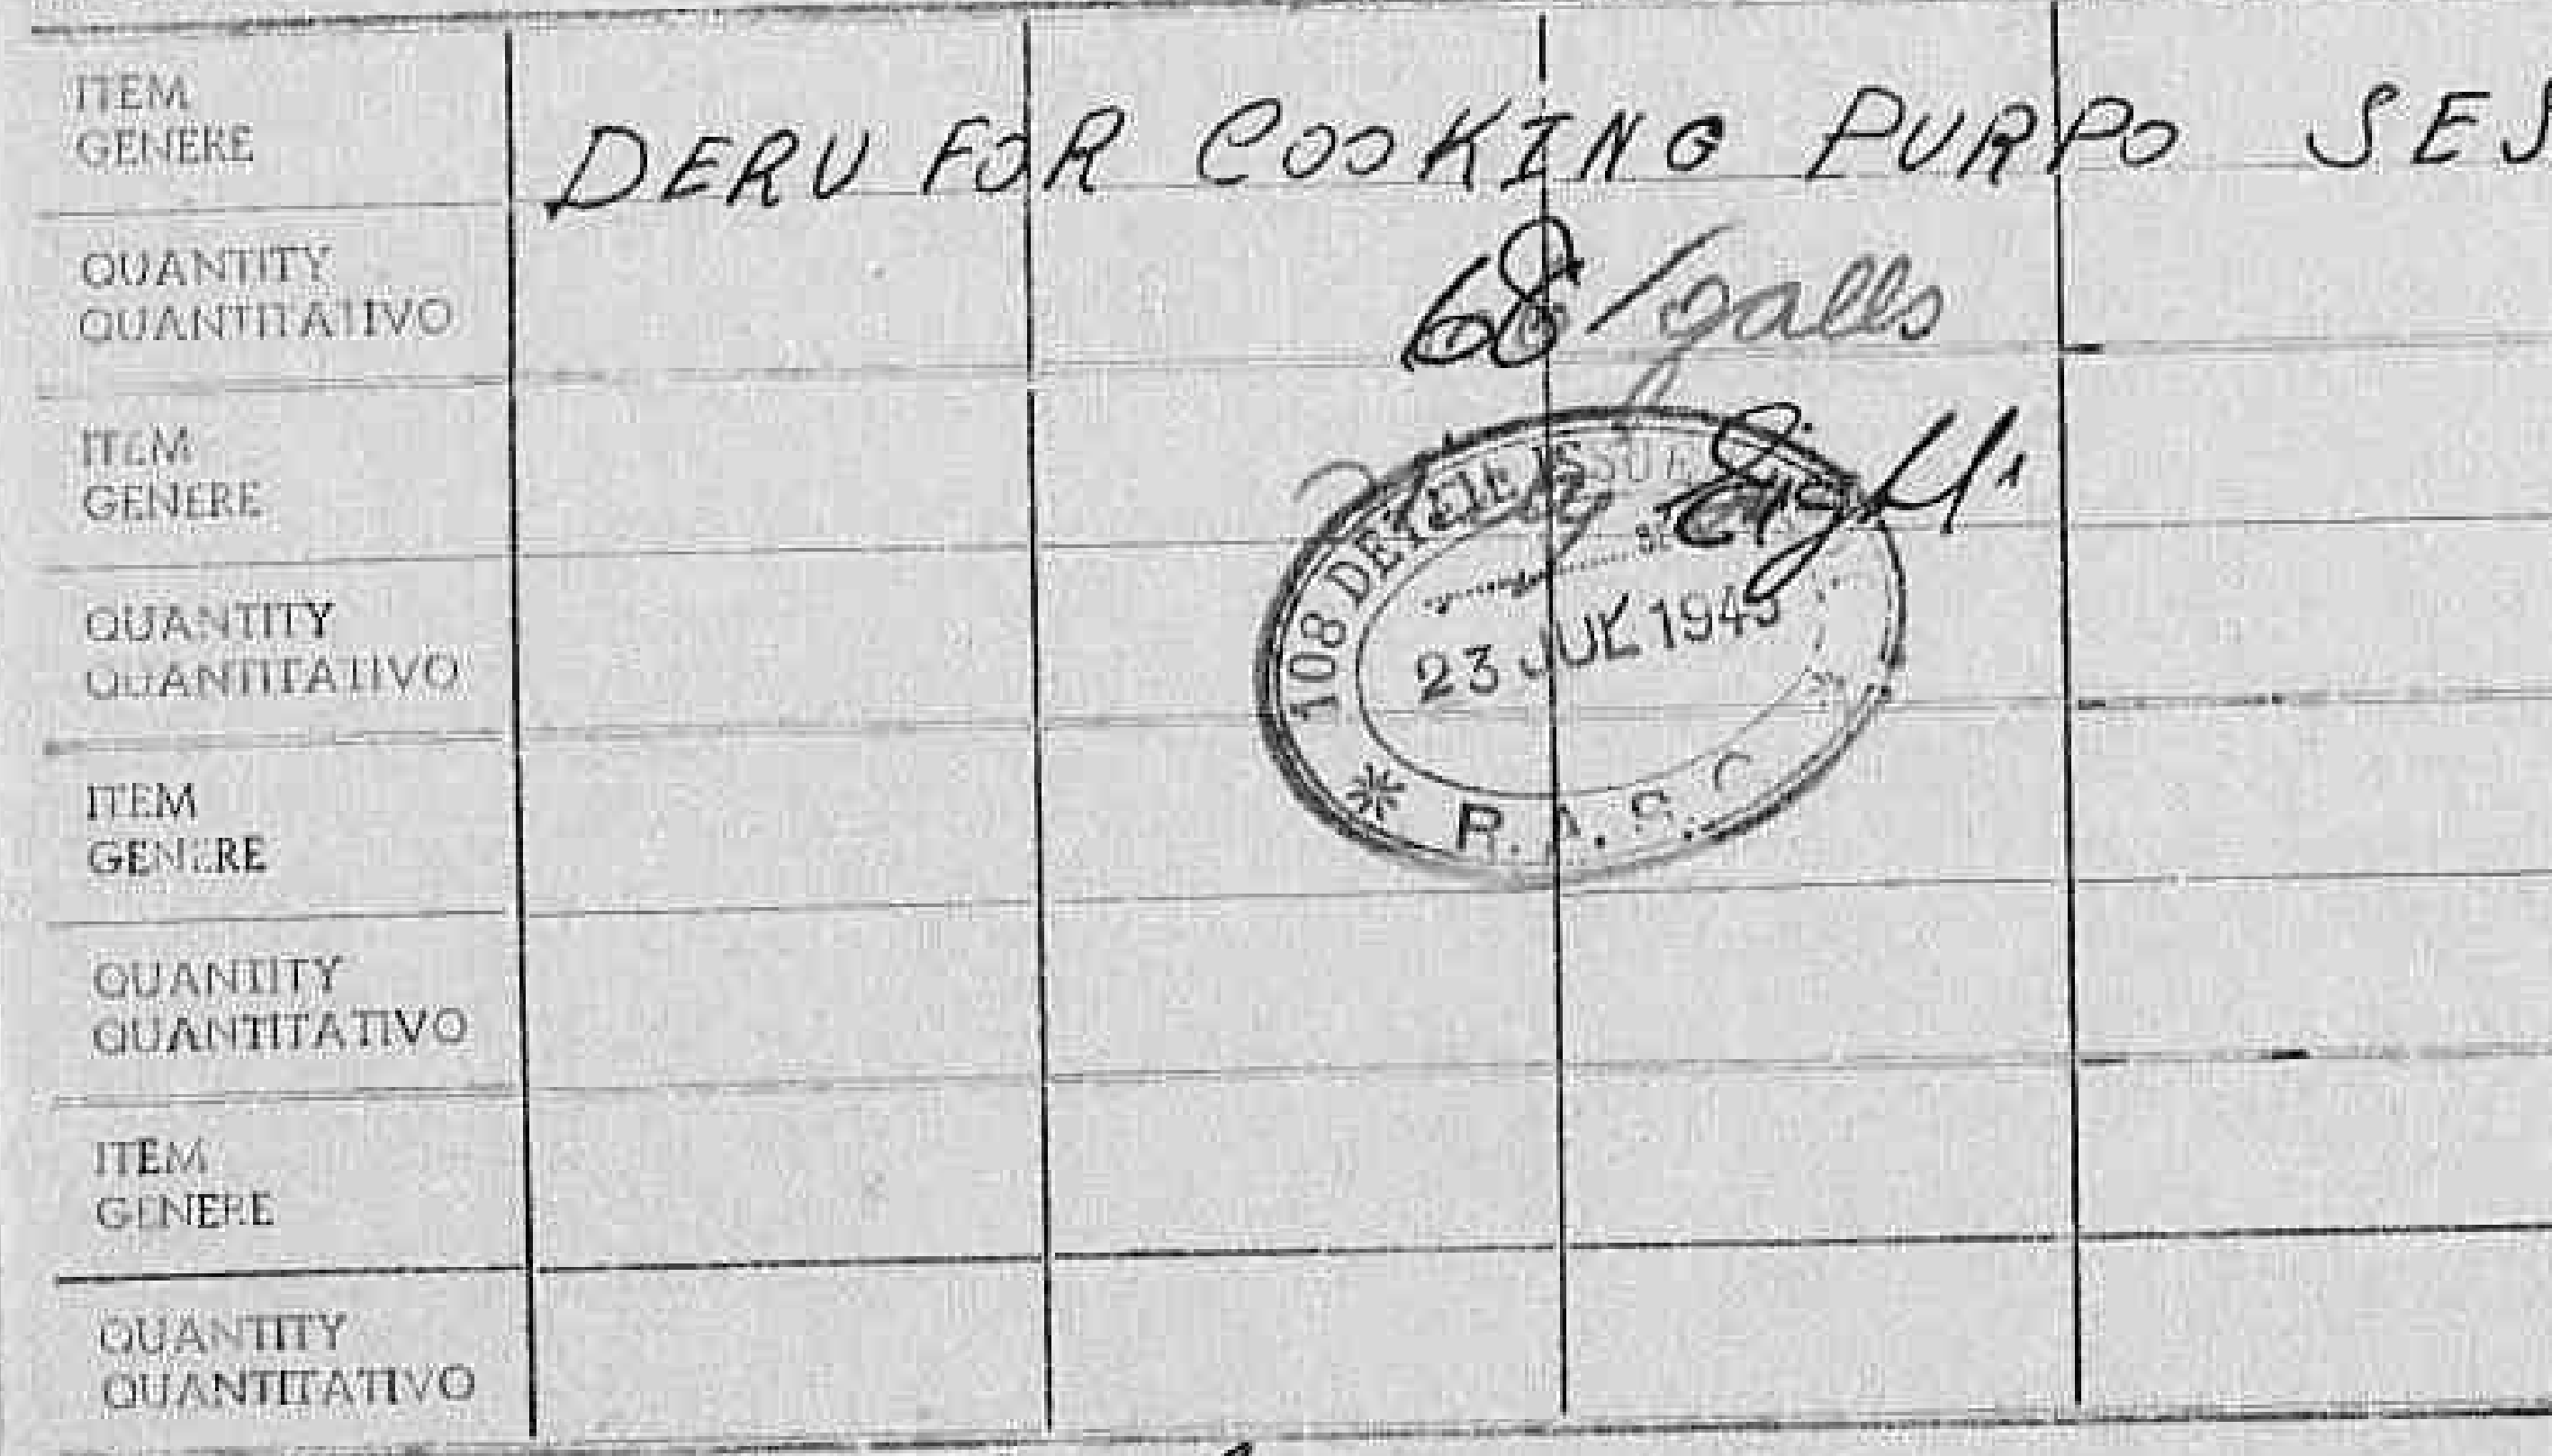 ITEM
GENERE
DERV FOR COOKING PURPOSES
QUANTITY
QUANTITATIVO
68/galls
ITEM
GENERE
Eight
QUANTITY
QUANTITATIVO
108 ISSUE
23 JUL 1945
* R.A.S.C
ITEM
GENERE
QUANTITY
QUANTITATIVO
ITEM
GENERE
QUANTITY
QUANTITATIVO